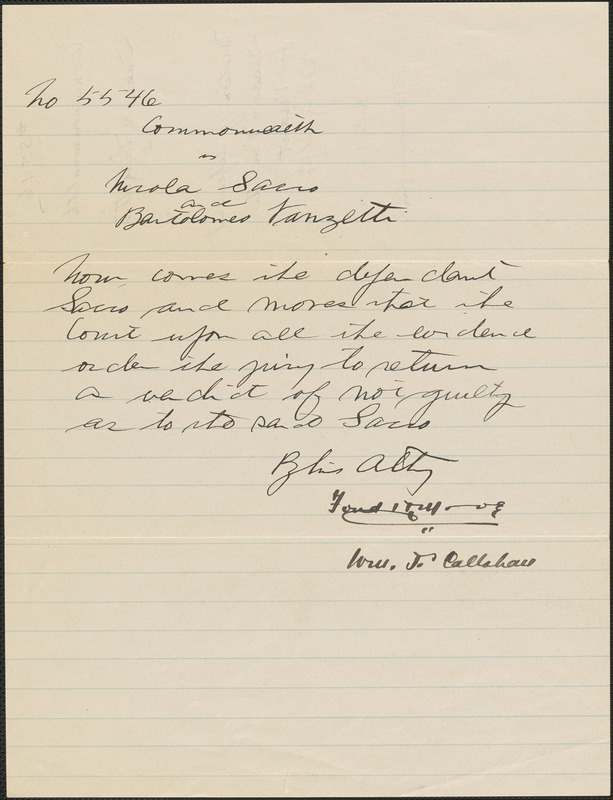 No 5546
Commonwealth
vs
Nicola Sacco
and
Bartolomeo Vanzetti
Now comes the defendant
Sacco and moves that the
Court upon all the evidence
order the jury to return
a verdict of not guilty
as to the said Sacco
By his Atty
Fred H Moore
"
Wm. J. Callahan